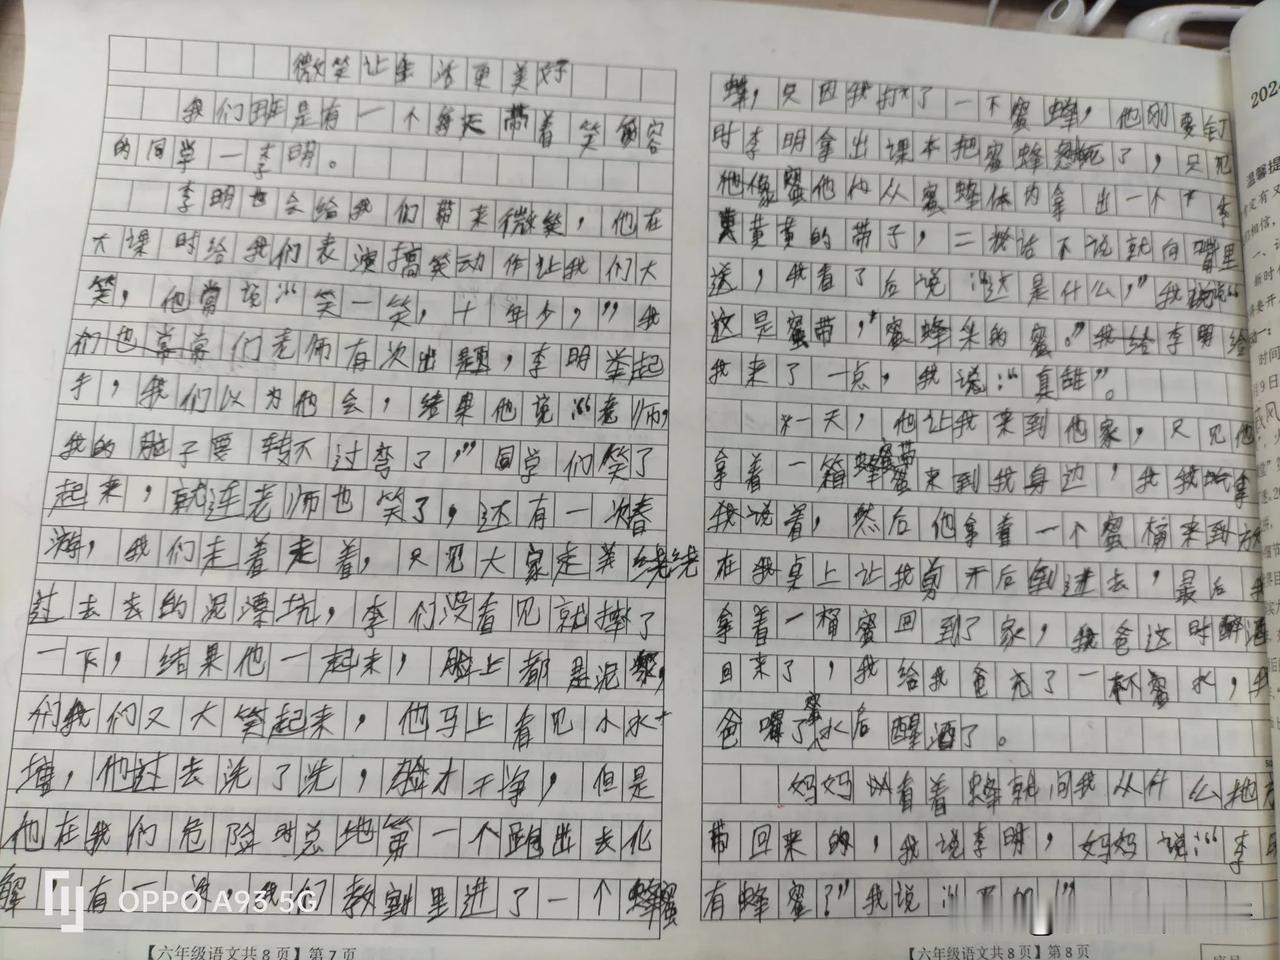 微笑让生活更美好
我们班是有一个每天带着笑容
的同学一李明。
李明也会给我们带来微笑，他在
大课时给我们表演搞笑动作让我们大
笑，他常说：“笑一笑，十年少，”我
们老师有次出题，李明举起
手，我们以为他会，结果他说：“老师，
我的脑子要转不过弯了，”同学们笑了
起来，就连老师也笑了，还有一次春
游，我们走着走着，只见大家走美绕绕
过去去的泥潭坑，李们没看见就摔了
一下，结果他一起来，脸上都是泥
我们又大笑起来，他马上看见小水
他过去洗了洗，脸才干净，但是
他在我们危险时总地第一个跑出去化
解，有一次，我们教室里进了一个蜜
蜂，只因我打了一下蜜蜂，他刚要钉
时李明拿出课本把蜜蜂死了，只见
他像蜜他们从蜜蜂体内拿出一个
黄黄的带子，二秒话不说就向嘴里
送，我看了后说：“这是什么，”我说“
这是蜜带，“蜜蜂采的蜜。”我给李明给
我来了一点，我说：“真甜”。
一天，他让我来到他家，只见他
拿着一箱蜂蜜来到我身边，我
我说着，然后他拿着一个蜜桶来到
在我桌上让我剪开后倒进去，最后我
拿着一桶蜜回到了家，我爸这时醉酒
回来了，我给我爸充了一杯蜜水，我
爸喝了蜜水后醒酒了。
妈妈看着蜂就问我从什么地方
带回来的，我说李明，妈妈说：“李明
有蜂蜜？”我说
OPPO A93 5G
【六年级语文共8页】第7页
【六年级语文共8页】第8页
2024
温馨提